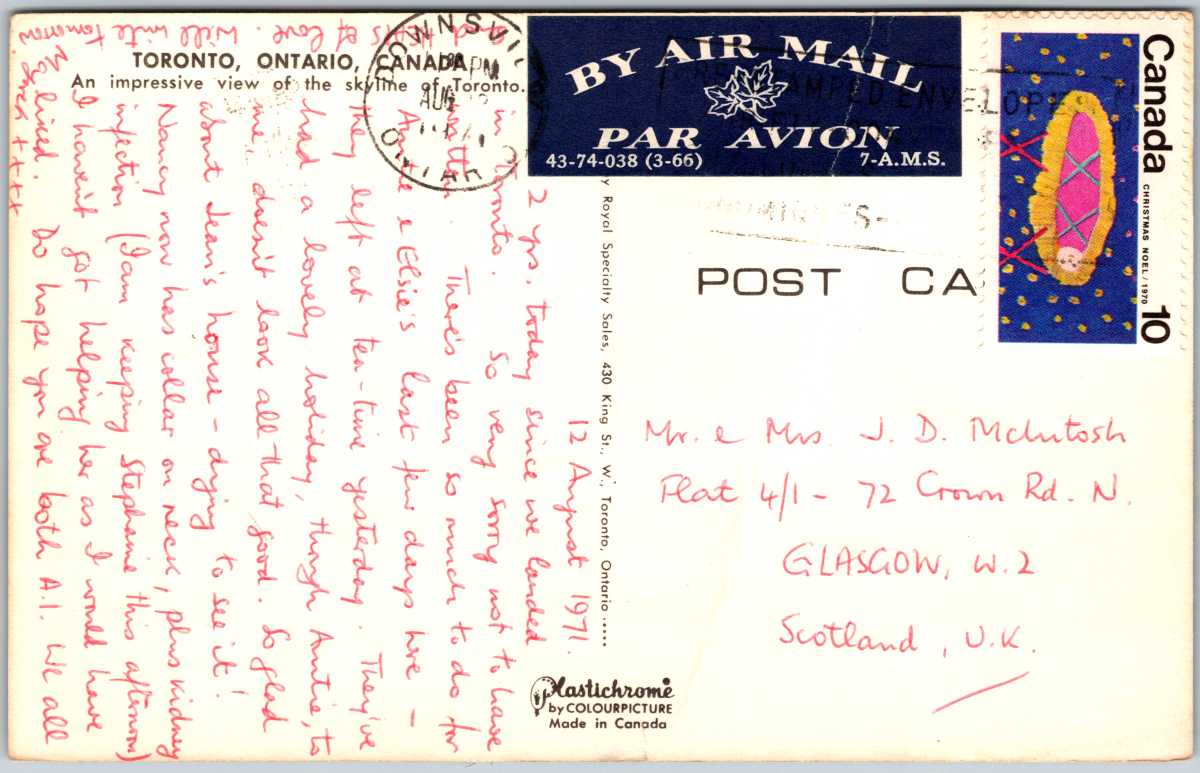 TORONTO, ONTARIO, CANADA
An impressive view of the skyline of Toronto.
12 August 1971.
2 yrs. today since we landed
in Toronto. So very sorry not to have
written. There's been so much to do for
& Elsie's last few days here –
They left at tea-time yesterday. They've
had a lovely holiday, though Auntie, to
me, doesn't look all that good. So glad
about Jean's house – dying to see it!
Nancy now has collar on neck, plus kidney
infection (I am keeping Stephanie this afternoon)
I haven't got helping her as I would have
liked. Do hope you are both A.1. We all
lots of love. Will write tomorrow
x x x
Royal Specialty Sales, 430 King St., W., Toronto, Ontario .....
PM
AUG
BY AIR MAIL
PAR AVION
43-74-038 (3-66) 7-A.M.S.
Canada
CHRISTMAS NOEL / 1970
10
POST CA
Mr. & Mrs. J. D. McIntosh
Flat 4/1 – 72 Crown Rd. N.
GLASGOW, W.2
Scotland, U.K.
Plastichrome
by COLOURPICTURE
Made in Canada